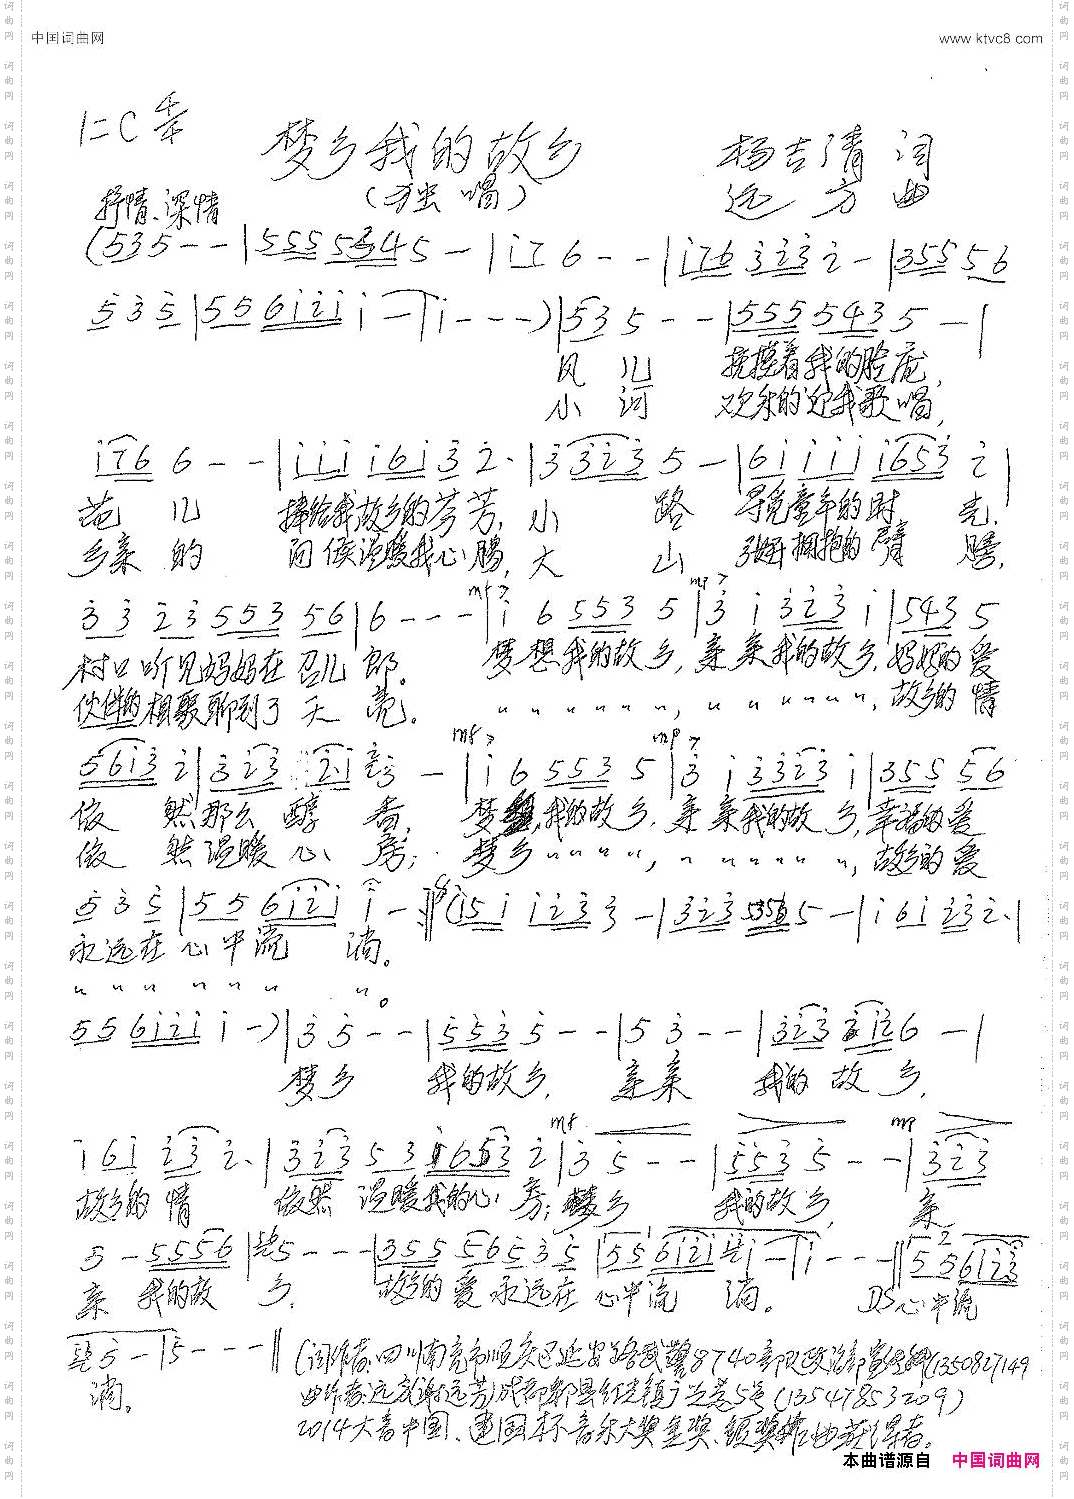 中国词曲网
www ktvc8 com
1=C 4/4
梦乡我的故乡
杨吉清 词
(独 唱)
远 方 曲
抒情、深情
(5 3 5 - - | 5 5 5 5 3 4 5 - | i 7 6 - - | i 7 6 3 2 3 2 - | 3 5 5 5 6
5 3 5 | 5 5 6 i 2 i i - | i - - - ) | 5 3 5 - - | 5 5 5 5 4 3 5 - |
风 儿 抚摸着我的脸庞,
小 河 欢乐的迎我歌唱,
i 7 6 6 - - | i i i i 6 i 3 2 · | 3 3 2 3 5 - | 6 i i i i i 6 5 3 2 |
花 儿 捧给我故乡的芬芳, 小 路 寻觅童年的时 光.
乡亲 的 问候温暖我心肠, 大 山 张开拥抱的臂 膀,
3 3 2 3 5 5 3 5 6 | 6 - - - | i 6 5 5 3 5 | 3 i 3 2 3 i | 5 4 3 5
mf
mp
村口听见妈妈在 召儿 郎。 梦想我的故乡, 亲亲我的故乡, 妈妈的爱
伙伴的相聚聊到了天 亮。 〃 〃 〃 〃 〃 〃, 〃 〃 〃 〃 〃 〃, 故乡的情
mf
mp
5 6 i 3 2 | 3 2 3 2 i 3 - | i 6 5 5 3 5 | 3 i 3 3 2 3 i | 3 5 5 5 6
依 然那么 醇 香, 梦想,我的故乡. 亲亲我的故乡, 幸福的爱
依 然温暖 心 房; 梦乡〃〃〃〃, 〃 〃 〃〃〃 〃, 故乡的爱
5 3 5 | 5 5 6 i 2 i i - ‖ (i 5 i i 2 3 3 - | 3 2 3 5 3 5 6 5 - | i 6 i 2 3 2 · |
永远在 心中流 淌。
〃 〃 〃 〃 〃 〃 〃。
5 5 6 i 2 i i - ) | 3 5 - - | 5 5 3 5 - - | 5 3 - - | 3 2 3 2 i 2 6 - |
梦乡 我的故乡, 亲亲 我的 故 乡,
mf
mp
i 6 i 2 3 2 · | 3 3 2 3 5 3 i 6 5 3 2 | 3 5 - - | 5 5 3 5 - - | 3 2 3
故乡的 情 依然 温暖我的心 房; 梦乡 我的故乡, 亲
5 - 5 5 5 6 | 5 - - - | 3 5 5 5 6 5 3 5 | 5 5 6 i 2 i i - | i - - - ‖ 5 5 6 i 2 3
亲 我的故 乡. 故乡的 爱 永远在 心中流 淌。 DS 心中流
5 - | 5 - - - ‖
淌。
(词作者:四川南充市顺庆区延安路武警8740部队政治部宣传科(1350827149
曲作者:远方(谢远芳)成都郫县红光镇广兰巷5号(13547853209)
2014大音中国、建国杯音乐大奖金奖、
本曲谱源自 中国词曲网